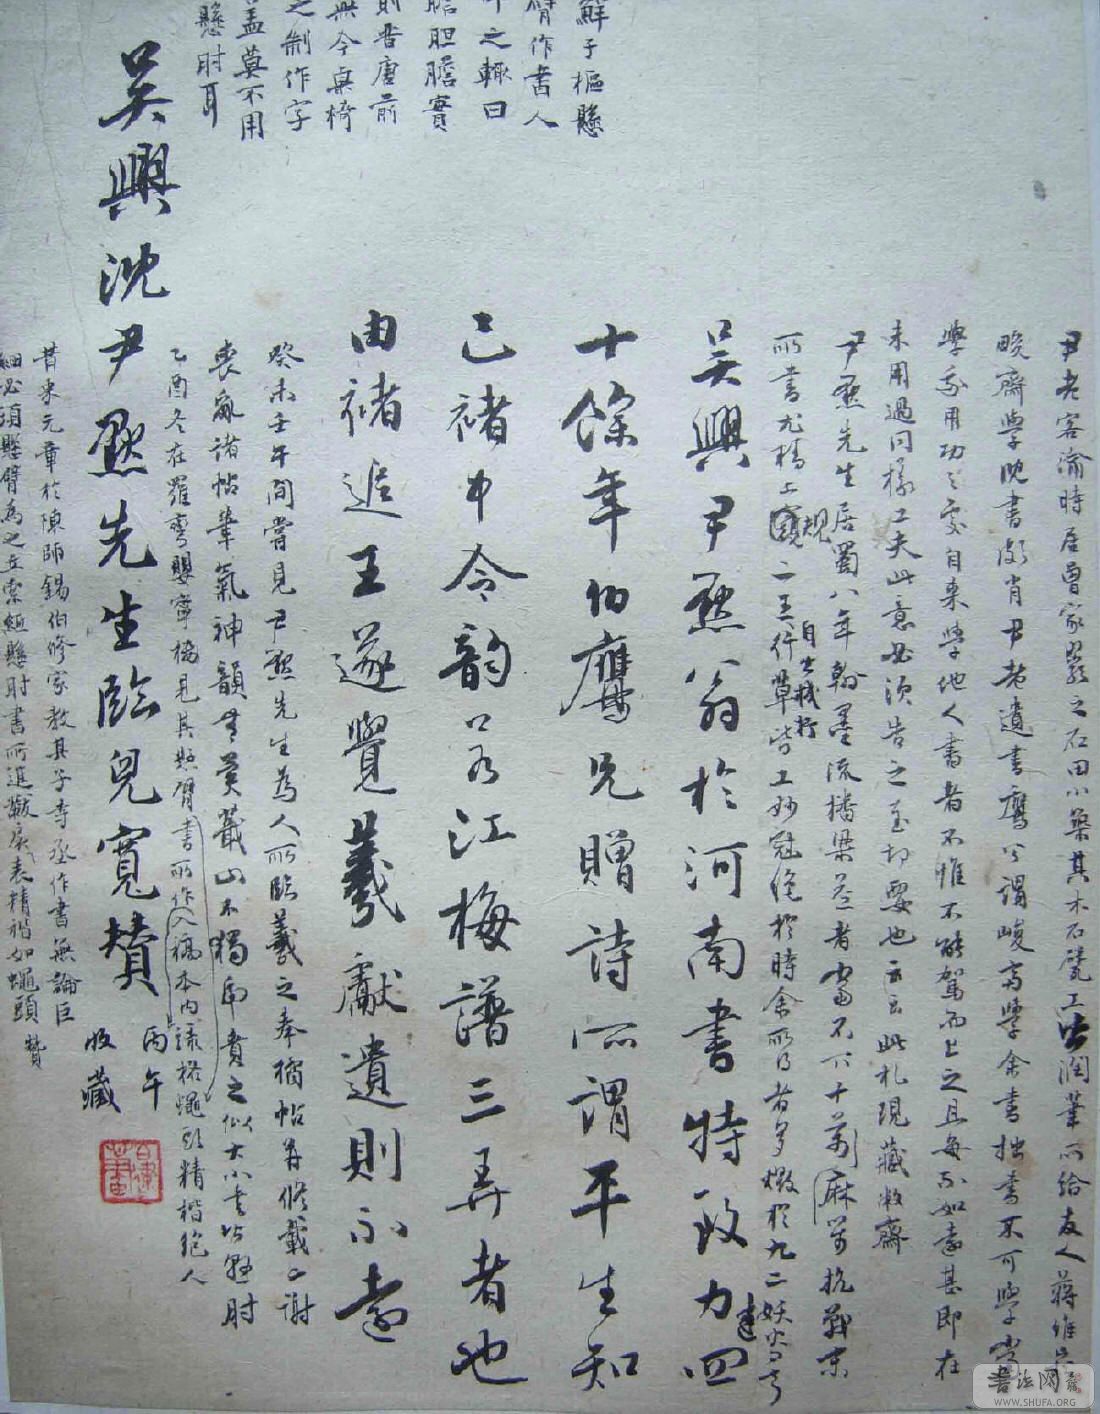 鮮于樞懸
臂作書人
之輒曰
膽胆膽實
則晉唐前
無今桌椅
之制作字
蓋莫不用
懸肘耳
尹老客渝時居曾家巖之石田小築其木石甓工出潤筆所給友人蔣維
畯齋學沈書頗肖尹老遺書鷹公謂峻齋學余書拙書不可學
學我用功之處自來學他人書者不惟不能駕而上之且每不如遠甚即在
未用過同樣工夫此意必須告之至切要也云云此札現藏敝齋
尹默先生居蜀八年翰墨流播梁益者當不下十萬麻萬抗戰末
所書尤精上規二王行草皆工妙冠絕於時余所得者多燬於九二妖火
自書棧行
吳興尹默翁於河南書特致力四
十餘年伯鷹兄贈詩所謂平生知
己褚中令韵又為江梅譜三弄者也
由褚追王遂覺羲獻遺則不遠
癸未壬午間嘗見尹默先生為人所臨羲之奉橘帖并修載謝
喪亂諸帖筆氣神韻
不獨 貴之似大小 皆懸肘
乙酉冬在羅彎嬰寧 見其懸臂書所作入稿本內 格蠅頭精楷絕人
吳興沈尹默先生臨兒寬贊
丙午
收藏
昔米元章於陳師錫伯修家教其子寺丞作書無論巨
細必須懸臂為之 懸肘書所進 表精楷如蠅頭
贊
書法网
WWW.SHUFA.ORG